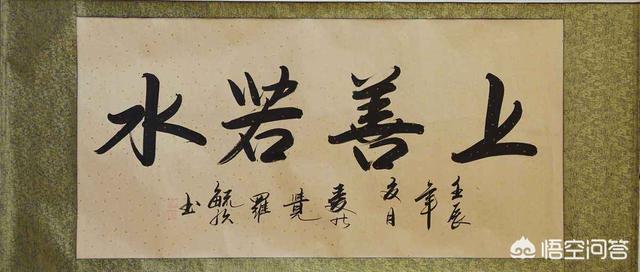 上善若水
壬辰年夏月愛新覺羅毓书
悟空问答